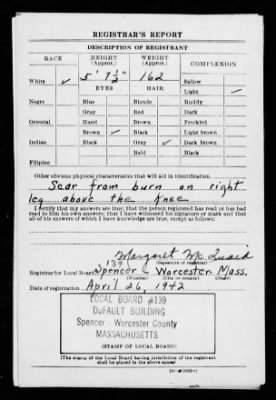 REGISTRAR'S REPORT
DESCRIPTION OF REGISTRANT
RACE HEIGHT (Approx.) WEIGHT (Approx.) COMPLEXION
White ✓ 5' 7 1/2" 162 Sallow
EYES HAIR Light ✓
Negro Blue Blonde Ruddy
Gray Red Dark
Oriental Hazel Brown Freckled
Brown ✓ Black Light brown
Indian Black Gray ✓ Dark brown
Bald Black
Filipino
Other obvious physical characteristics that will aid in identification
Scar from burn on right
leg above the knee
I certify that my answers are true; that the person registered has read or has had
read to him his own answers; that I have witnessed his signature or mark and that
all of his answers of which I have knowledge are true, except as follows:
Margaret McQuaid
(Signature of registrar)
Registrar for Local Board 139 Spencer Worcester Mass.
(Number) (City or county) (State)
Date of registration April 26, 1942
LOCAL BOARD #139
DuFAULT BUILDING
Spencer - Worcester County
MASSACHUSETTS
(STAMP OF LOCAL BOARD)
(The stamp of the Local Board having jurisdiction of the registrant
shall be placed in the above space.)